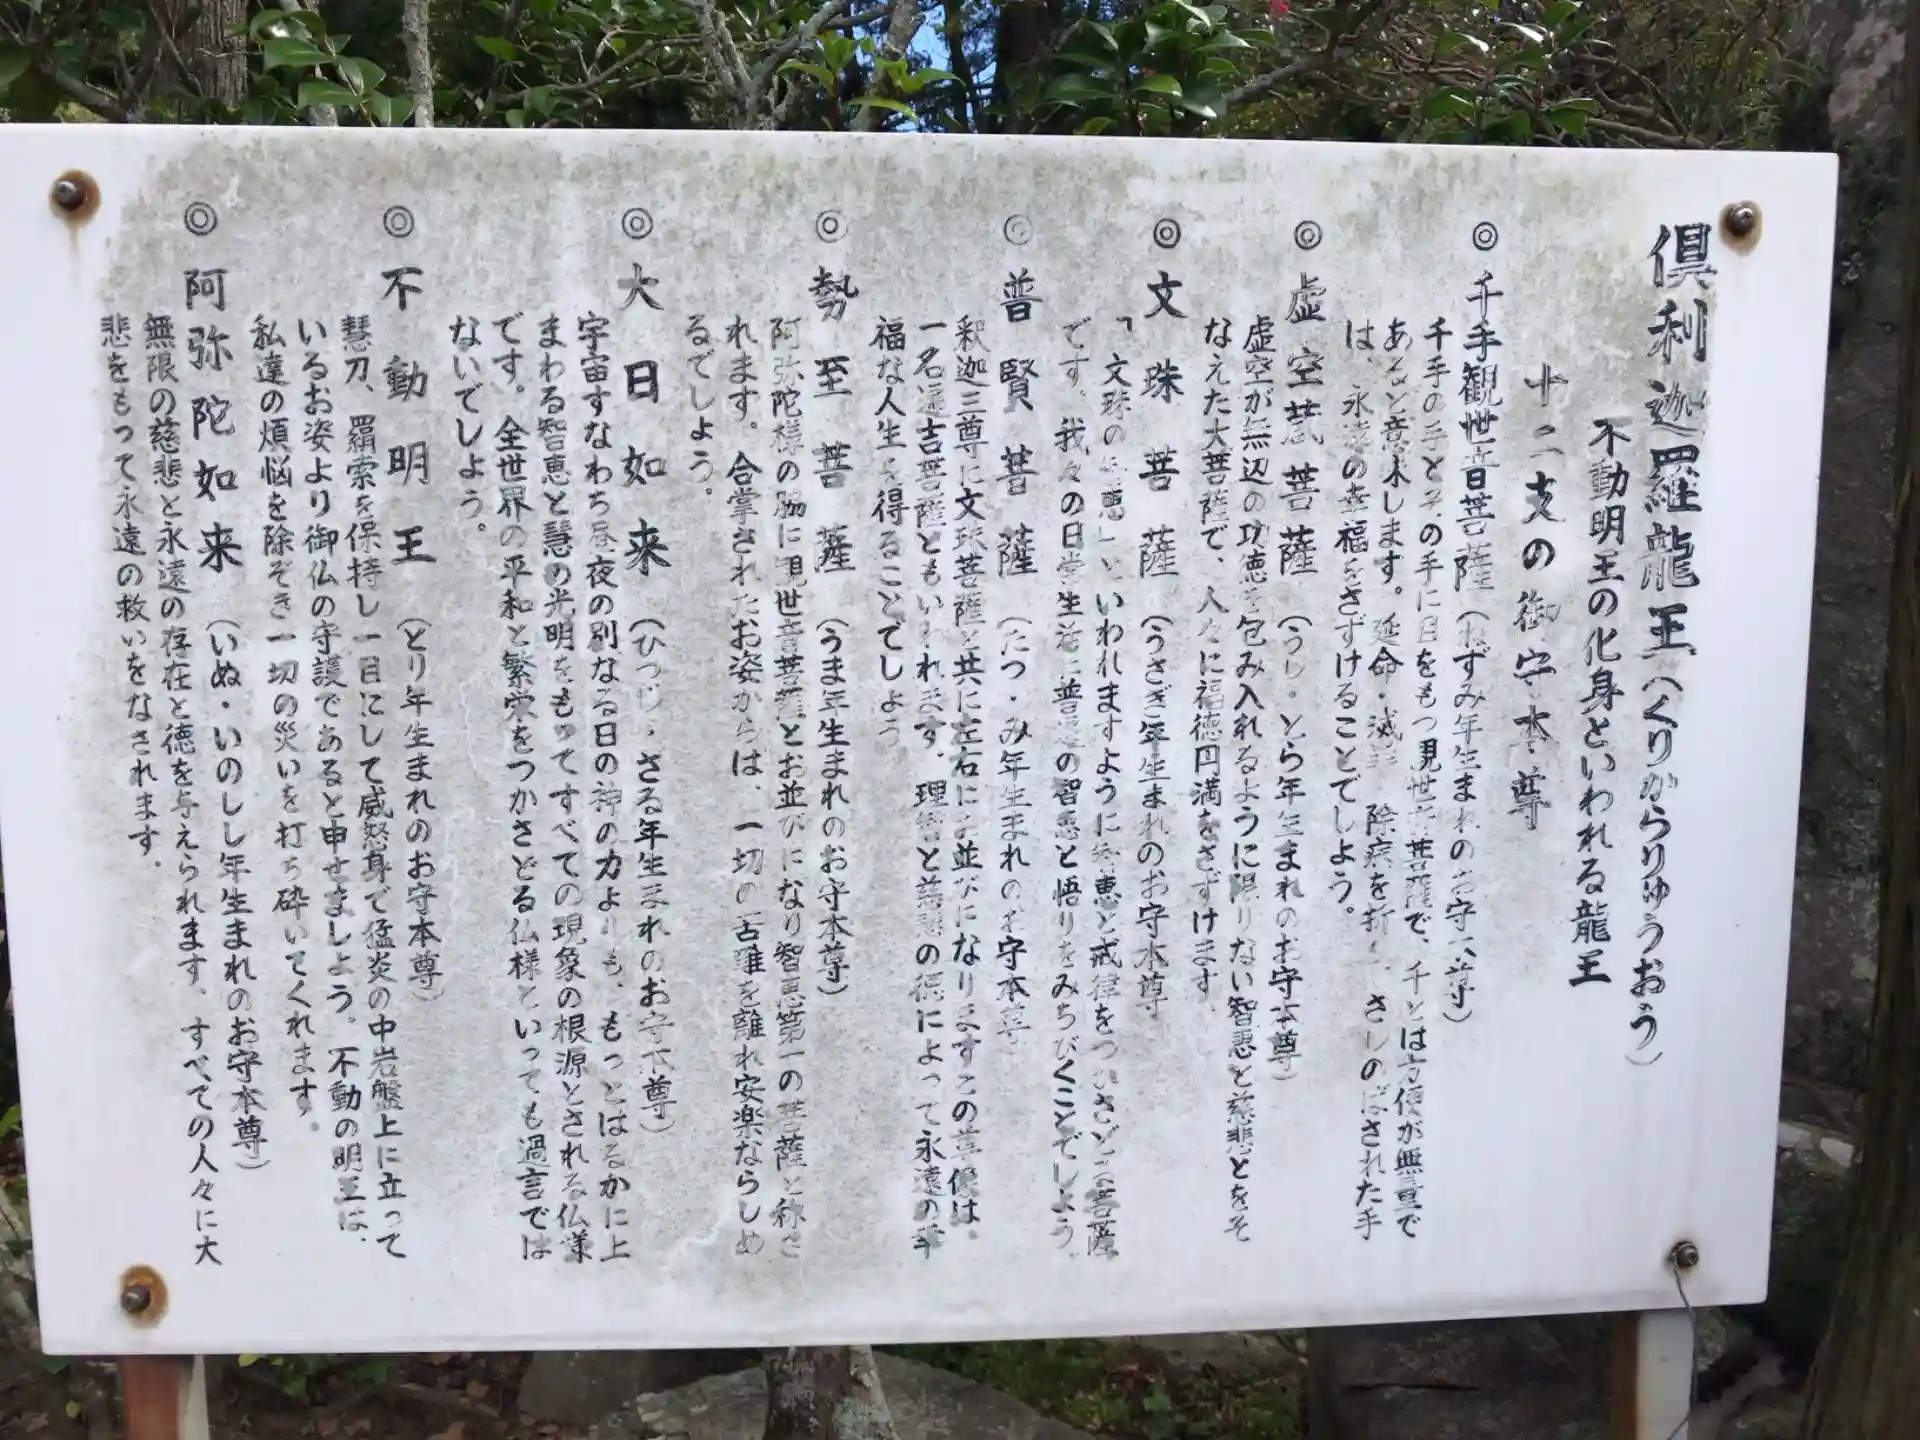 倶利迦羅龍王(くりからりゅうおう)
不動明王の化身といわれる龍王
十二支の御守本尊
◎千手観世音菩薩(ねずみ年生まれのお守本尊)
千手の手とその手に目をもつ現世音菩薩で、千とは方便が無量で
あると意味します。延命・滅罪・除病を祈り、さしのばされた手
は、永遠の幸福をさずけることでしよう。
◎虚空蔵菩薩(うし・とら年生まれのお守本尊)
虚空が無辺の功徳を包み入れるように限りない智恵と慈悲とをそ
なえた大菩薩で、人々に福徳円満をさずけます。
◎文珠菩薩(うさぎ年生まれのお守本尊)
「文珠の智恵」といわれますように智恵と戒律をつかさどる菩薩
です。我々の日常生活に普遍の智恵と悟りをみちびくことでしよう。
◎普賢菩薩(たつ・み年生まれのお守本尊)
釈迦三尊に文珠菩薩と共に左右にお並びになりますこの尊像は、
一名遍吉菩薩ともいわれます。理智と慈悲の徳によって永遠の幸
福な人生を得ることでしよう。
◎勢至菩薩(うま年生まれのお守本尊)
阿弥陀様の脇に現世音菩薩とお並びになり智恵第一の菩薩と称さ
れます。合掌されたお姿からは、一切の苦難を離れ安楽ならしめ
るでしよう。
◎大日如来(ひつじ・さる年生まれのお守本尊)
宇宙すなわち昼夜の別なる日の神の力よりも、もっとはるかに上
まわる智恵と慧の光明をもってすべての現象の根源とされる仏様
です。全世界の平和と繁栄をつかさどる仏様といっても過言では
ないでしよう。
◎不動明王(とり年生まれのお守本尊)
慧刀、羂索を保持し一目にして威怒身で猛炎の中岩盤上に立って
いるお姿より御仏の守護であると申せましよう。不動の明王は、
私達の煩悩を除ぞき一切の災いを打ち砕いてくれます。
◎阿弥陀如来(いぬ・いのしし年生まれのお守本尊)
無限の慈悲と永遠の存在と徳を与えられます。すべての人々に大
悲をもって永遠の救いをなされます。